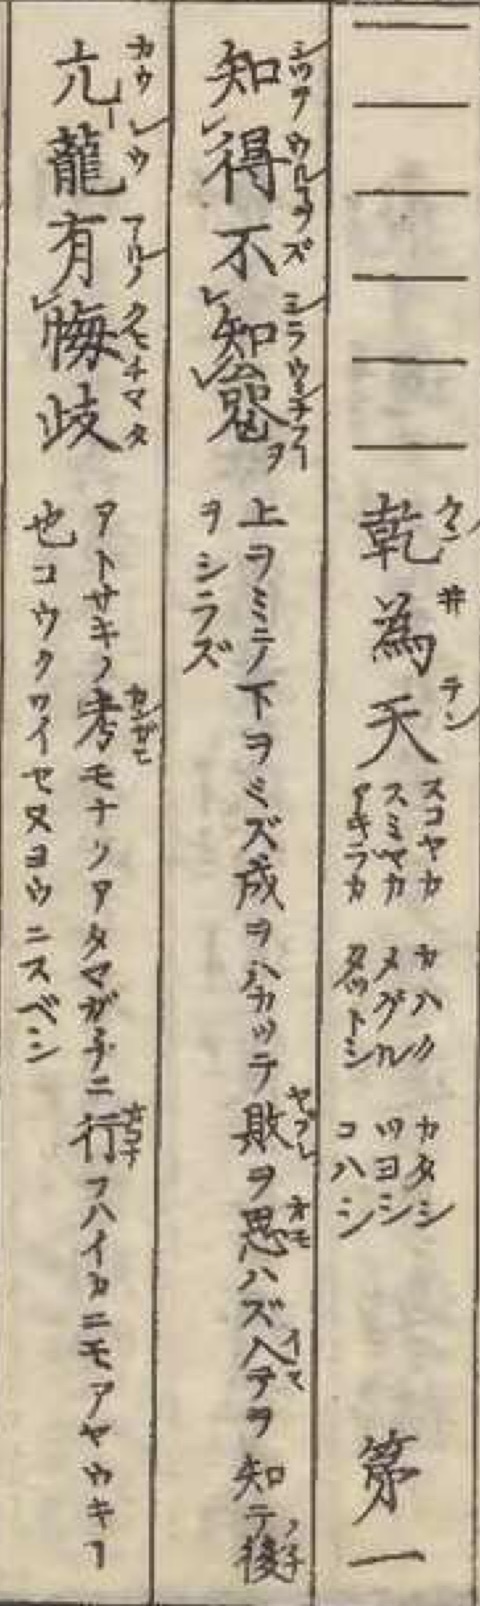 乾為天 第一
スコヤカ カハク カタシ
スミヤカ メグル ツヨシ
アキラカ タットシ コハシ
知得不知
上ヲミテ下ヲミズ成ヲハカッテ敗ヲ思ハズ入テヲ知テ後
ヲシラズ
亢龍有悔岐
アトサキノ考モナクアタマガチニ行フハイカニモアヤウキヿ
也コウクワイセヌヨウニスベシ